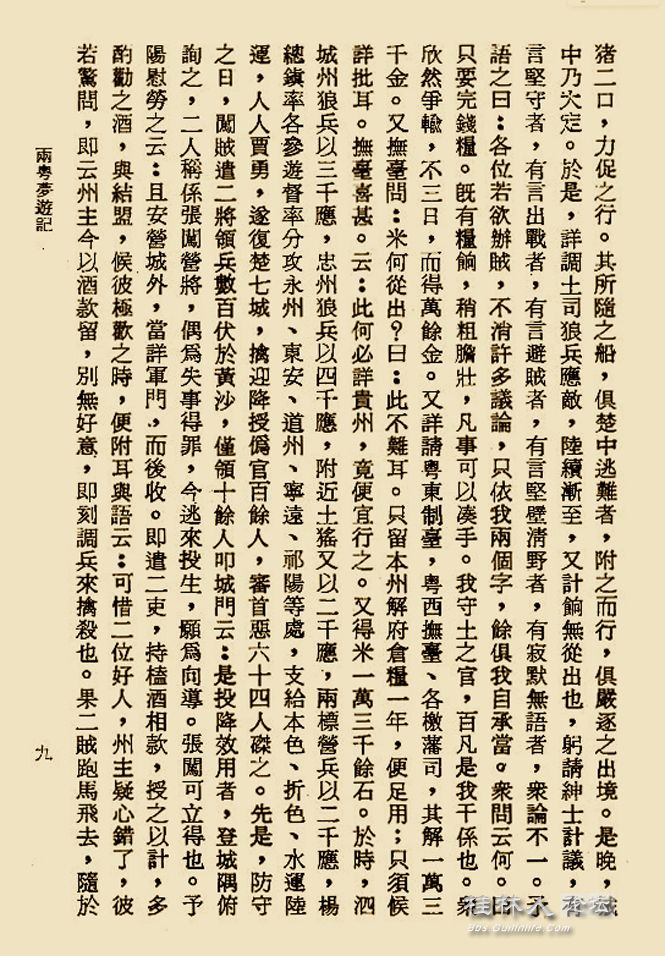 猪二口，力促之行。其所隨之船，俱楚中逃難者，附之而行，俱嚴逐之出境。是晚，城
中乃大定。於是，詳調土司狼兵應敵，陸續漸至，又計餉無從出也，躬請紳士計議，有
言堅守者，有言出戰者，有言避賊者，有言堅壁清野者，有寂默無語者，衆論不一。予
語之曰：各位若欲辦賊，不消許多議論，只依我兩個字，餘俱我自承當。衆問云何。曰
只要完錢糧。旣有糧餉，稍粗膽壯，凡事可以凑手。我守土之官，百凡是我干係也。衆
欣然爭輸，不三日，而得萬餘金。又詳請粤東制臺，粤西撫臺、各檄藩司，其解一萬三
千金。又撫臺問：米何從出？曰：此不難耳。只留本州解府倉糧一年，便足用；只須候
詳批耳。撫臺喜甚。云：此何必詳貴州，竟便宜行之。又得米一萬三千餘石。於時，泗
城州狼兵以三千應，忠州狼兵以四千應，附近土猺又以二千應，兩標營兵以二千應，楊
總鎮率各參遊督率分攻永州、東安、道州、寧遠、祁陽等處，支給本色、折色、水運陸
運，人人賈勇，遂復楚七城，擒迎降授僞官百餘人，審首惡六十四人磔之。先是，防守
之日，闖賊遣二將領兵數百伏於黃沙，僅領十餘人叩城門云：是投降效用者，登城隅俯
詢之，二人稱係張闖營將，偶爲失事得罪，今逃來投生，願爲向導。張闖可立得也。予
陽慰勞之云：且安營城外，當詳軍門，而後收。即遣二吏，持榼酒相款，授之以計，多
酌勸之酒，與結盟，候彼極歡之時，便附耳與語云：可惜二位好人，州主疑心錯了，彼
若驚問，即云州主今以酒款留，別無好意，即刻調兵來擒殺也。果二賊跑馬飛去，隨於
兩粤夢遊記
九
桂林人
bbs.Guilinlife.com